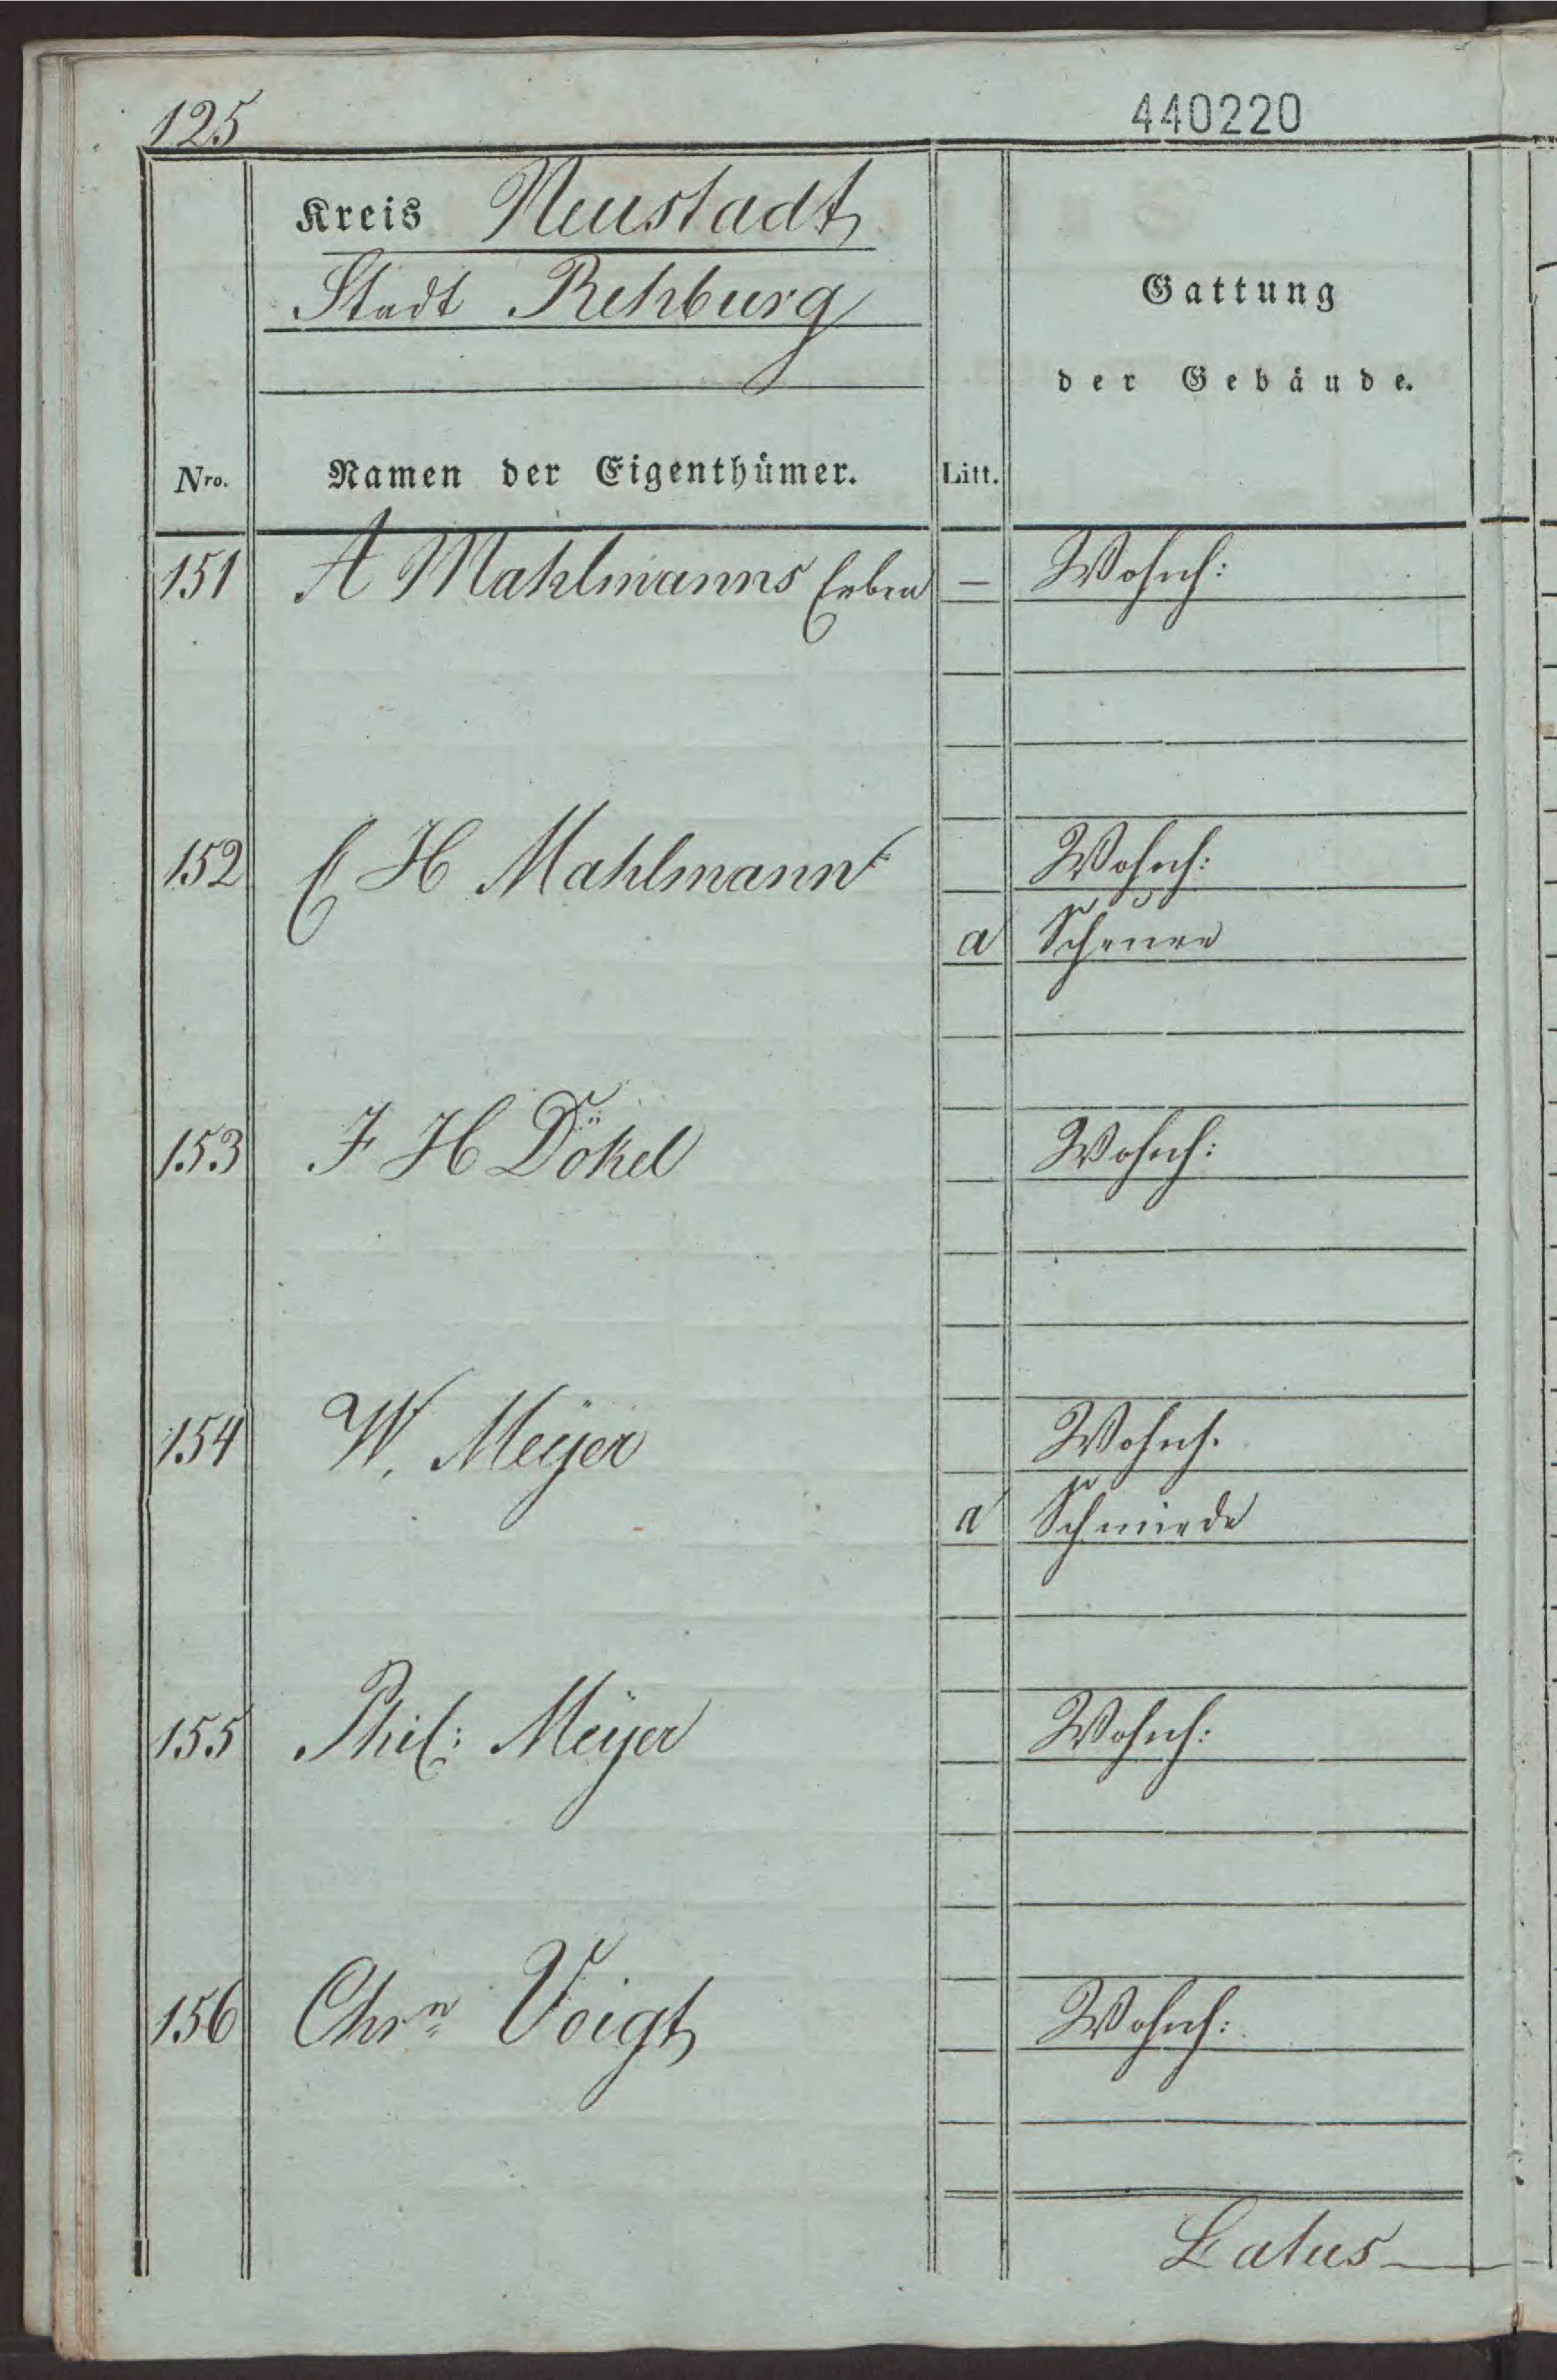 125
440220
Kreis Neustadt
Stadt Rehburg
Gattung
der Gebäude.
Nro. Namen der Eigenthümer. Litt.
151 A Mahlmanns Erben — Wohnh:
152 C H Mahlmann Wohnh:
a Scheune
153 F H Dökel Wohnh:
154 W. Meÿer Wohnh.
a Schmiede
155 Phil: Meÿer Wohnh:
156 Chrn Voigt Wohnh:
Latus